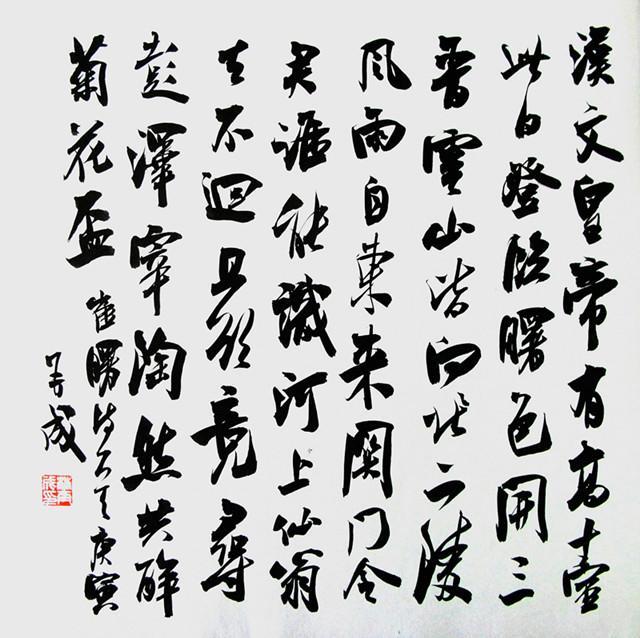 漢文皇帝有高臺
此日登臨曙色開三
晉雲山皆向北二陵
風雨自東來關門令
尹誰能識河上仙翁
去不迴且欲竟尋
彭澤宰陶然共醉
菊花盃
崔曙詩 庚寅
成